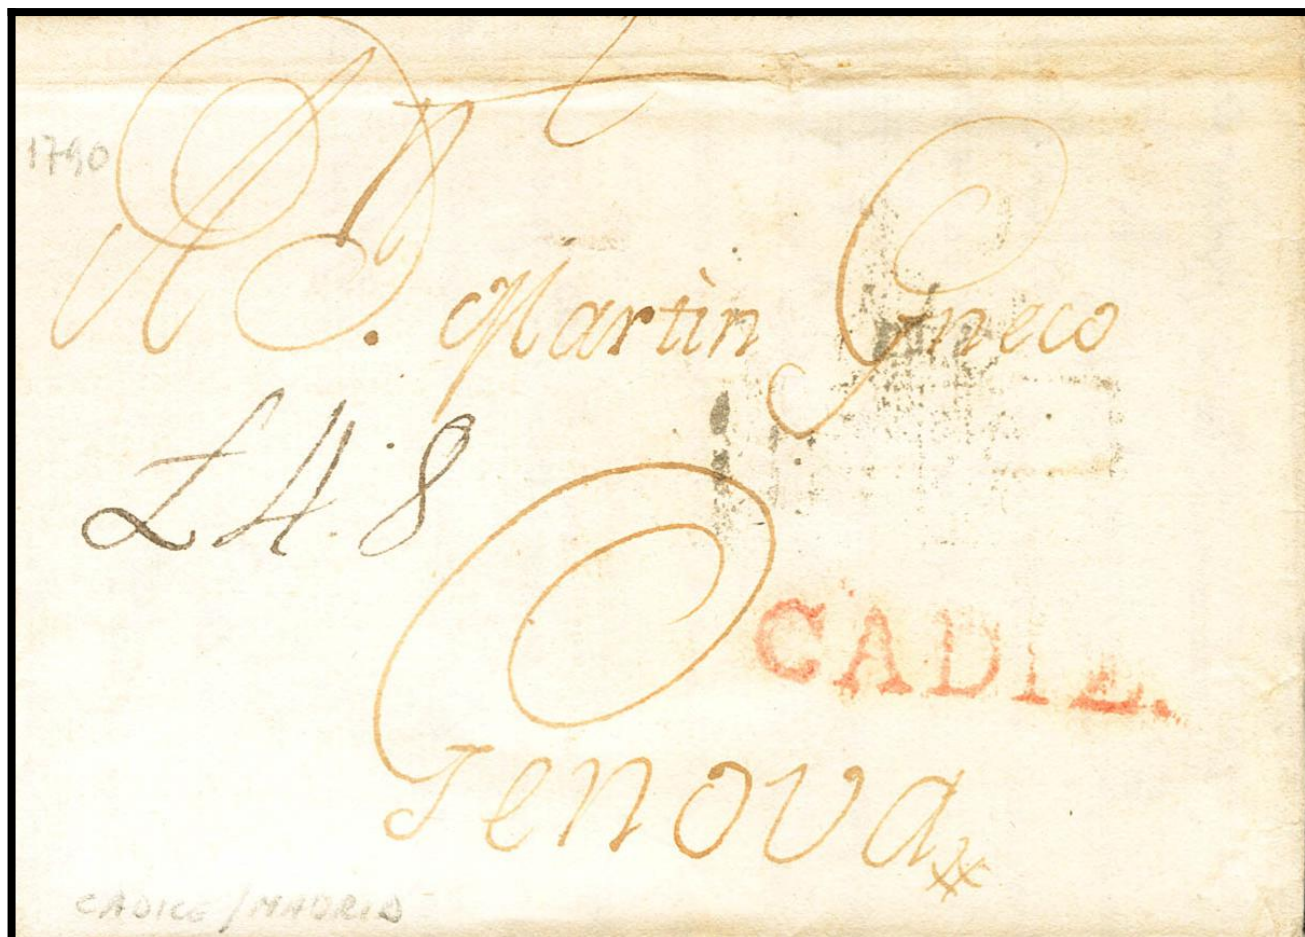 1790
A D.n Martin Gneco
£4:8
CADIZ.
Genova
CADICE / MADRID